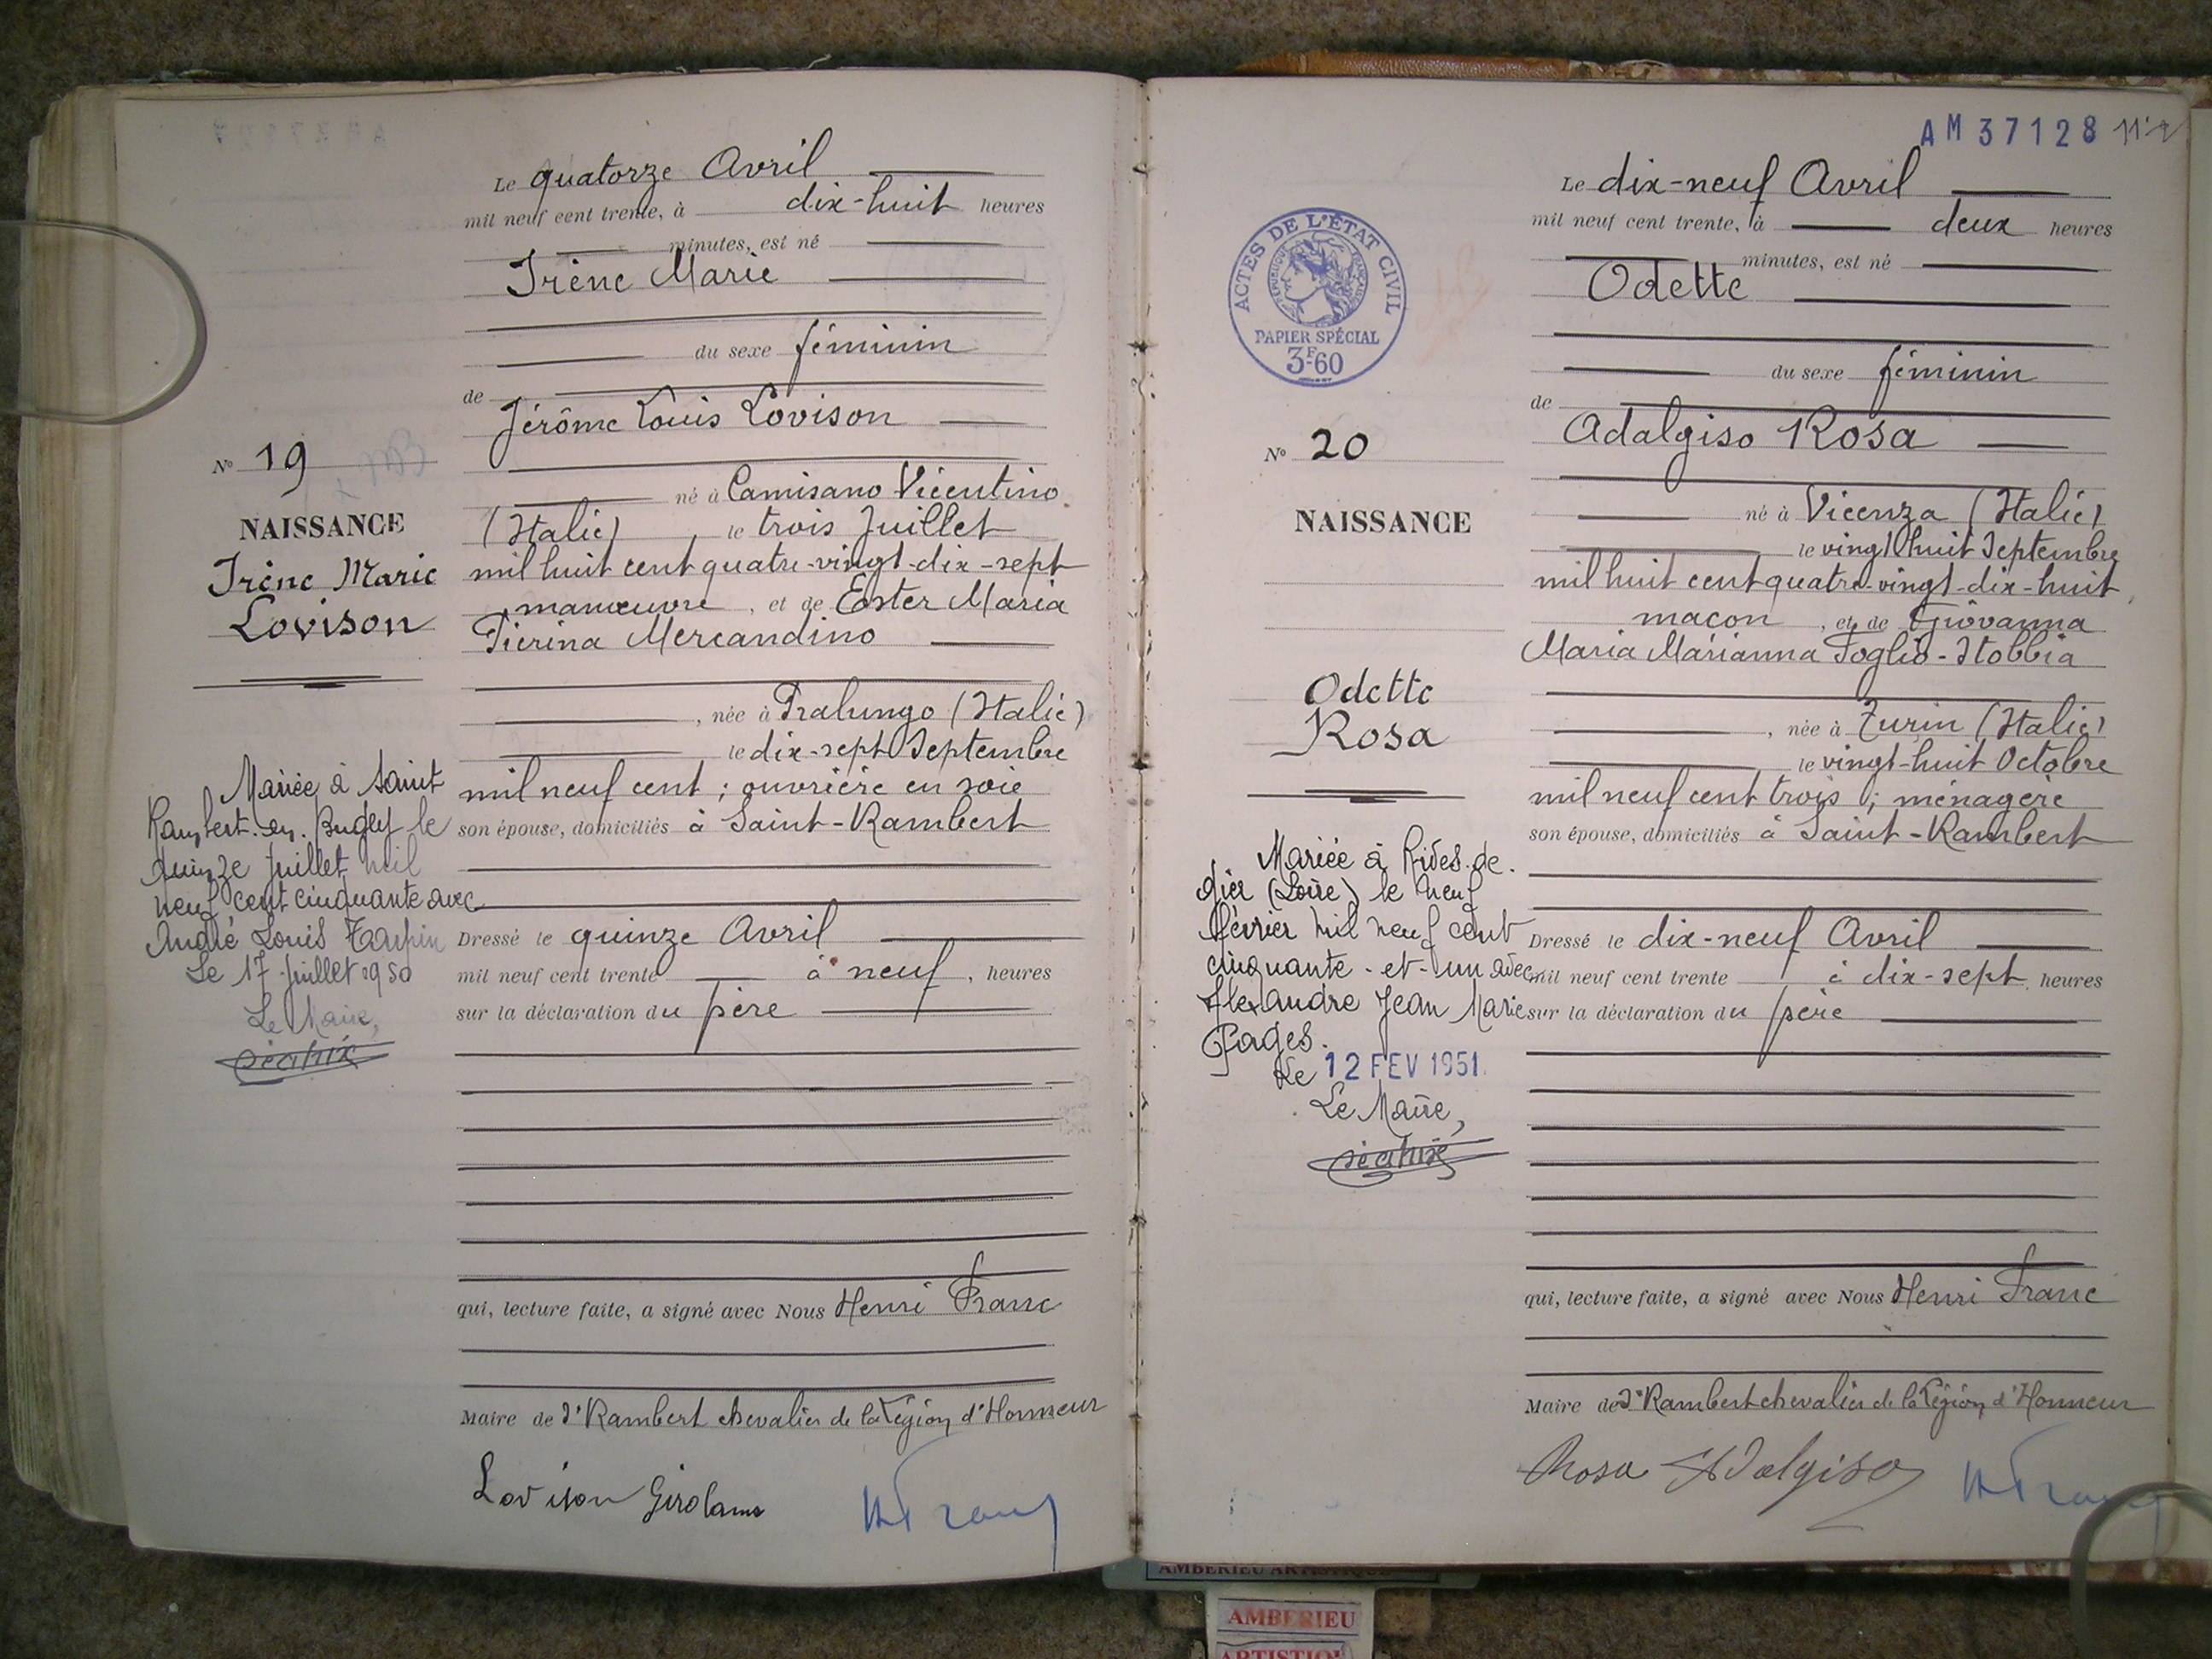 Le quatorze Avril
mil neuf cent trente, à dix-huit heures
minutes, est né
Irène Marie
du sexe féminin
de
Jérôme Louis Lovison
né à Camisano Vicentino
(Italie), le trois Juillet
mil huit cent quatre-vingt-dix-sept
manœuvre, et de Ester Maria
Pierina Mercandino
, née à Pralungo (Italie)
le dix-sept Septembre
mil neuf cent ; ouvrière en soie
son épouse, domiciliés à Saint-Rambert
Dressé le quinze Avril
mil neuf cent trente à neuf, heures
sur la déclaration du père
qui, lecture faite, a signé avec Nous Henri Franc
Maire de St Rambert chevalier de la Légion d'Honneur
Lovison Girolamo
HFranc
No 19
NAISSANCE
Irène Marie
Lovison
Mariée à Saint
Rambert-en-Bugey le
quinze juillet mil
neuf cent cinquante avec
André Louis Tarpin
Le 17 juillet 1950
Le Maire,
AM 37128
ACTES DE L'ÉTAT CIVIL
RÉPUBLIQUE FRANÇAISE
PAPIER SPÉCIAL
3F60
No 20
NAISSANCE
Odette
Rosa
Mariée à Rives-de-
Gier (Loire) le neuf
février mil neuf cent
cinquante-et-un avec
Alexandre Jean Marie
Pages.
Le 12 FEV 1951
Le Maire,
Le dix-neuf Avril
mil neuf cent trente, à deux heures
minutes, est né
Odette
du sexe féminin
de
Adalgiso Rosa
né à Vicenza (Italie)
le vingt huit Septembre
mil huit cent quatre-vingt-dix-huit,
maçon, et de Giovanna
Maria Marianna Foglio-Stobbia
, née à Turin (Italie)
le vingt-huit Octobre
mil neuf cent trois ; ménagère
son épouse, domiciliés à Saint-Rambert
Dressé le dix-neuf Avril
mil neuf cent trente à dix-sept heures
sur la déclaration du père
qui, lecture faite, a signé avec Nous Henri Franc
Maire de St Rambert chevalier de la Légion d'Honneur
Rosa Adalgiso
HFranc
AMBERIEU ARTISTIQUE
AMBERIEU